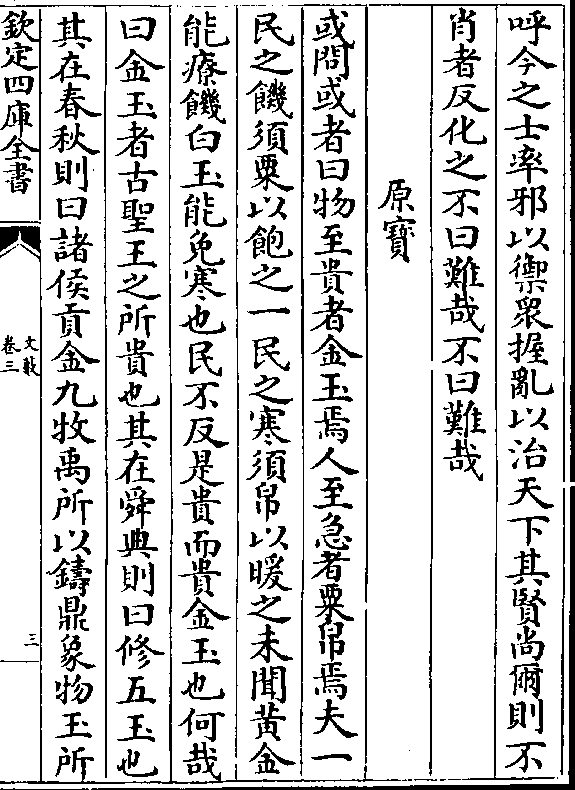 呼今之士率邪以禦衆握亂以治天下其賢尚爾則不
肖者反化之不曰難哉不曰難哉
原寶
或問或者曰物至貴者金玉焉人至急者粟帛焉夫一
民之饑須粟以飽之一民之寒須帛以暖之未聞黃金
能療饑白玉能免寒也民不反是貴而貴金玉也何哉
曰金玉者古聖王之所貴也其在舜典則曰修五玉也
其在春秋則曰諸侯貢金九牧禹所以鑄鼎象物玉所
欽定四庫全書
文藪
卷三
三